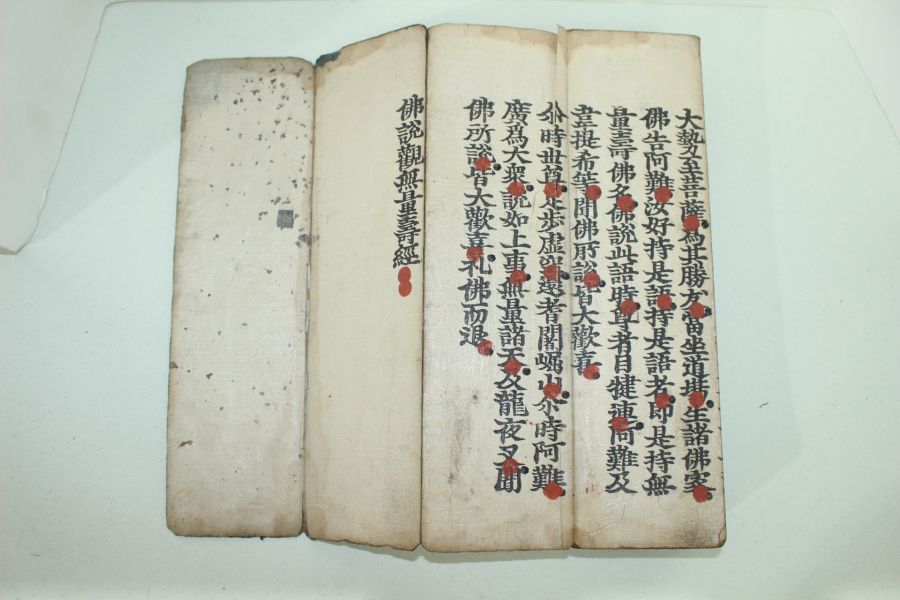 大勢至菩薩爲其勝友當坐道塲生諸佛家
佛告阿難汝好持是語持是語者即是持無
量壽佛名佛說此語時尊者目犍連阿難及
韋提希等聞佛所說皆大歡喜
尒時世尊足步虛空還耆闍崛山尒時阿難
廣爲大衆說如上事無量諸天及龍夜叉聞
佛所說皆大歡喜礼佛而退
佛說觀無量壽經